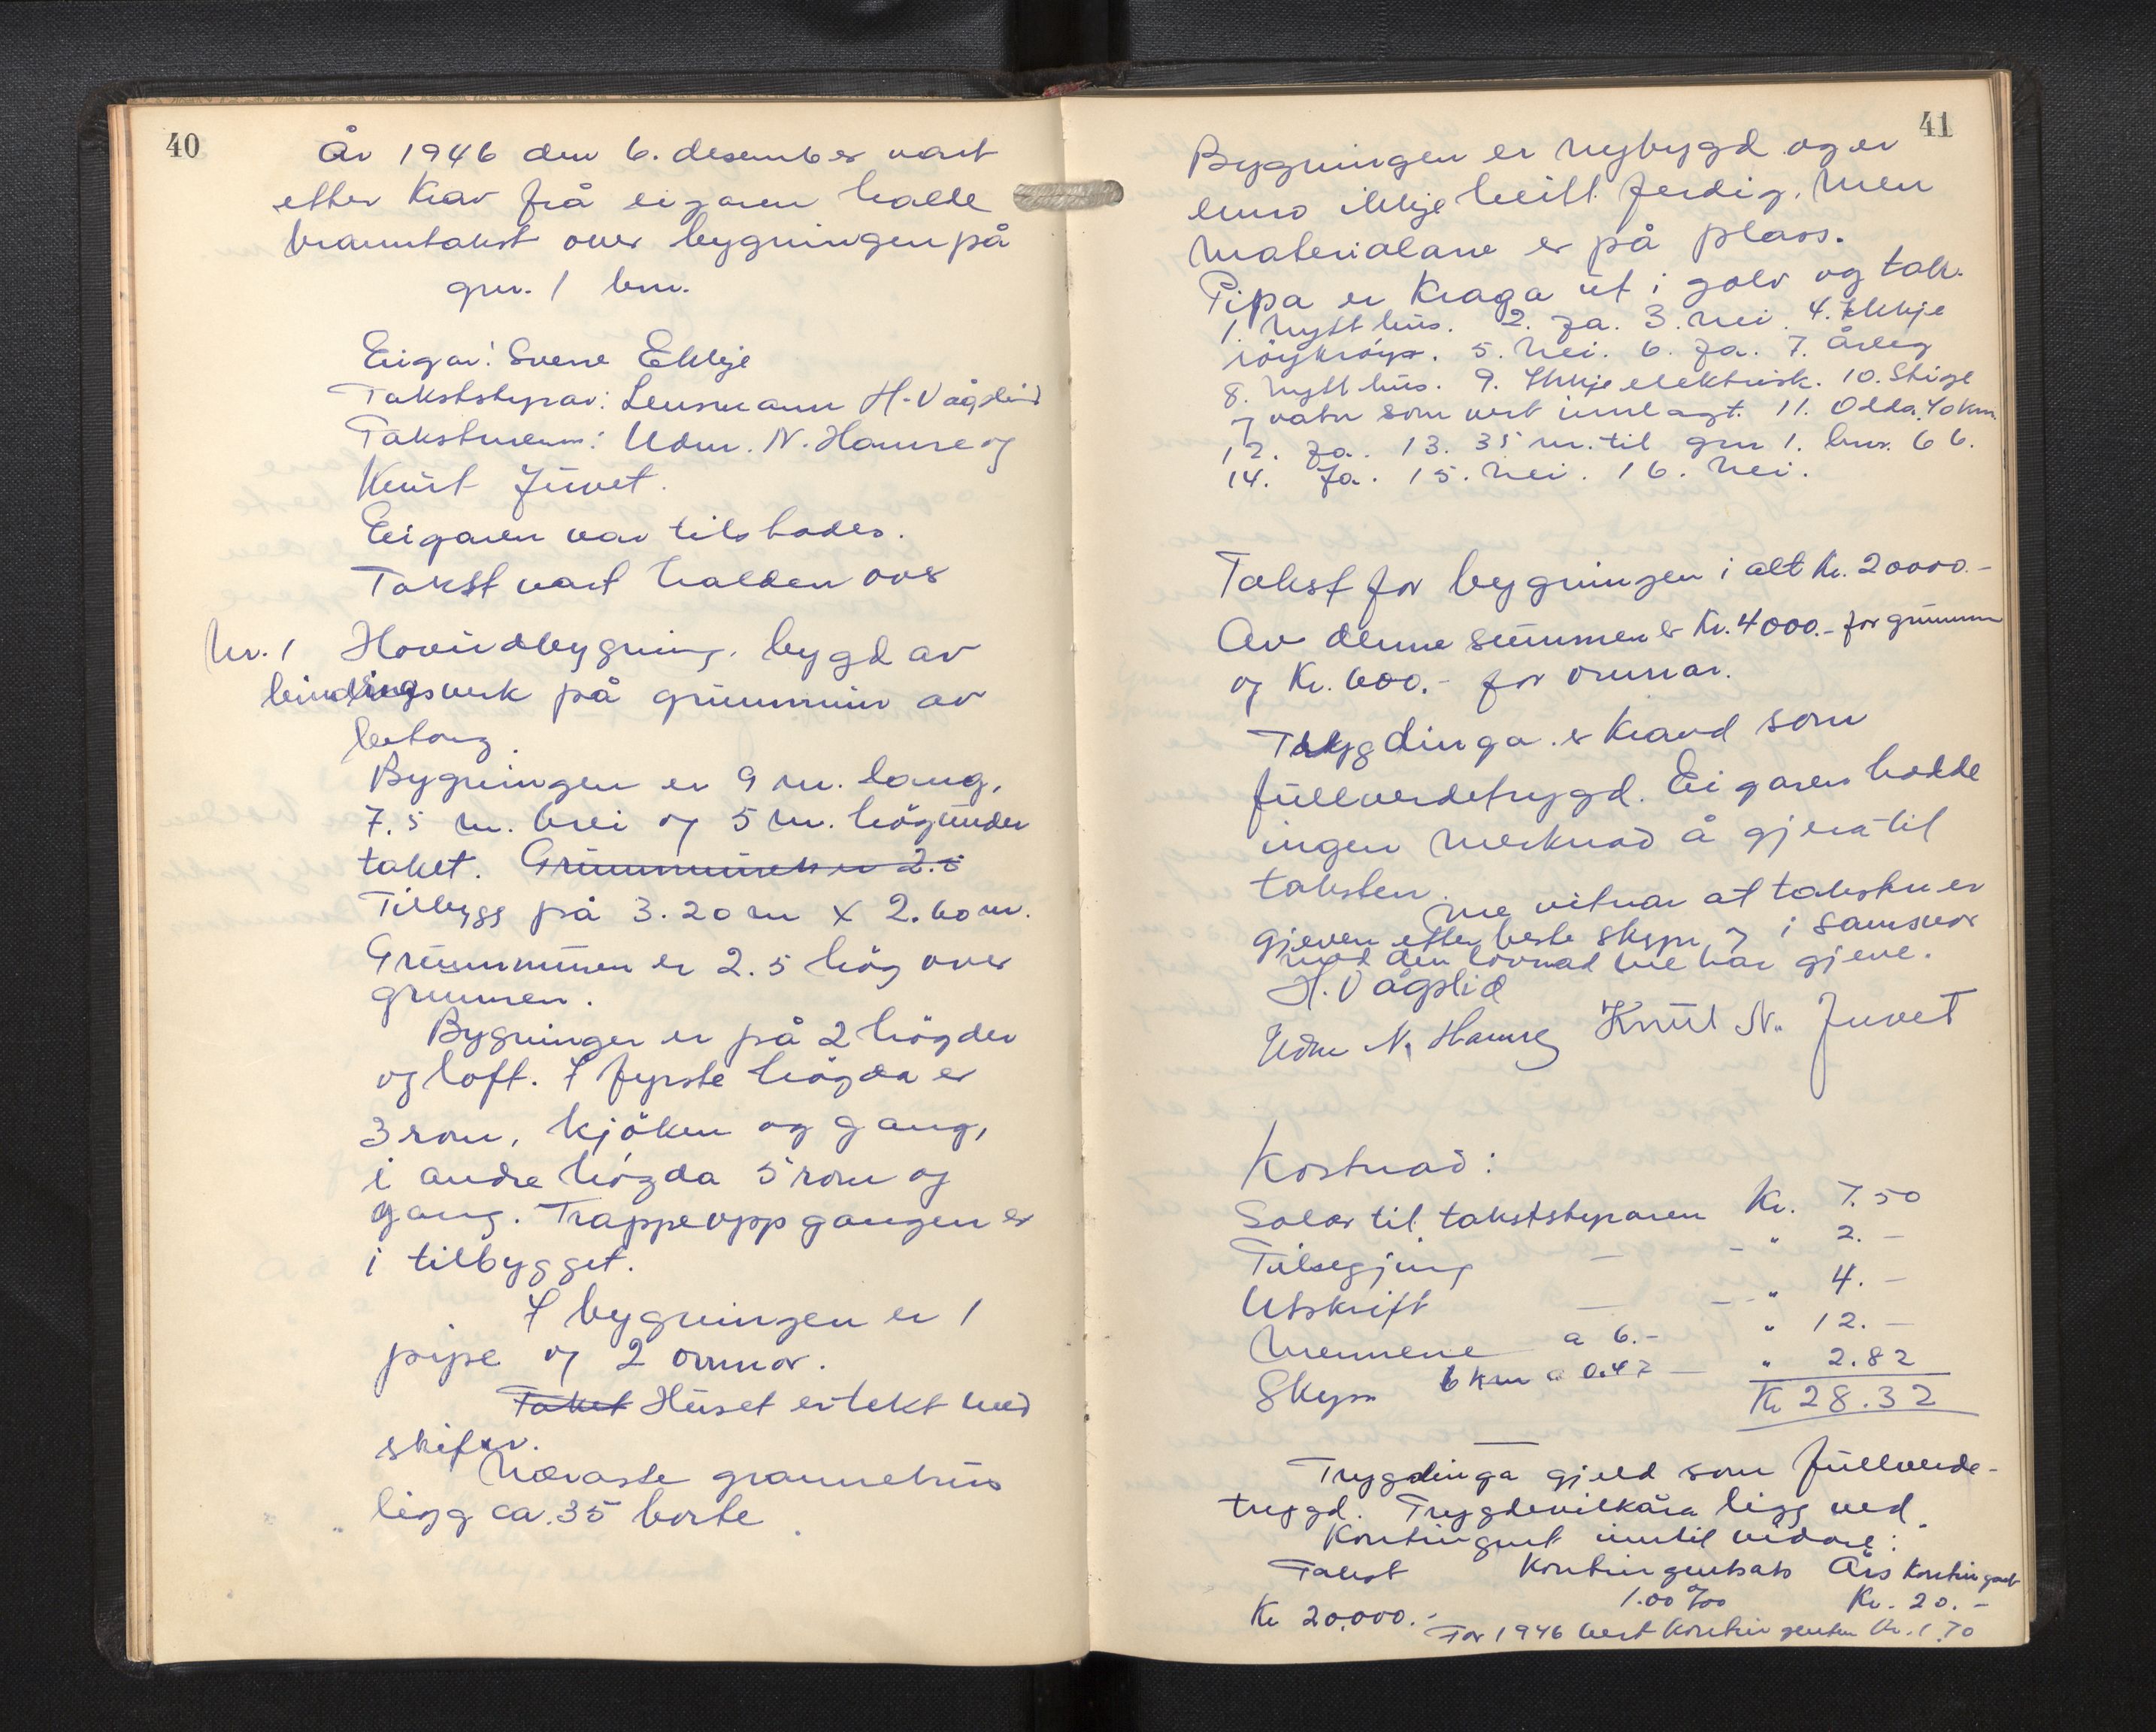 40
År 1946 den 6. desember vart
etter krav frå eigaren halde
branntakst over bygningen på
gnr. 1 bnr.
Eigar: Sverre Ekkje
Takststyrar: Lensmann H. Vågslid
Takstmenn: Udm. N. Hamre og
Knut Juvet.
Eigaren var tilstades.
Takst vart halden over
Nr. 1 Hovudbygning, bygd av
bindingsverk på grunnmur av
betong.
Bygningen er 9 m. lang,
7.5 m. brei og 5 m. hög under
taket. Grunnmuren er 2.5
Tilbygg på 3.20 m x 2.60 m.
Grunnmuren er 2.5 hög over
grunnen.
Bygningen er på 2 högder
og loft. I fyrste högda er
3 rom, kjöken og gang,
i andre högda 5 rom og
gang. Trappeoppgangen er
i tilbygget.
I bygningen er 1
pipe og 2 omnar.
Taket Huset er tekt med
skifer.
Næraste grannehus
ligg ca. 35 borte.
41
Bygningen er nybygd og er
enno ikkje heilt ferdig. Men
materialane er på plass.
Pipa er kraga ut i golv og tak.
1. Nytt hus. 2. Ja. 3. Nei. 4. Ikkje
röykröyr. 5. Nei. 6. Ja. 7. Årleg
8. Nytt hus. 9. Ikkje elektrisk. 10. Stige
og vatn som vert innlagt. 11. Odda, 40 km.
12. Ja. 13. 35 m. til gnr 1. bnr. 66.
14. Ja. 15. Nei. 16. Nei.
Takst for bygningen i alt kr. 20000.-
Av denne summen er kr. 4000.- for grunnmur
og kr. 600.- for omnar.
Trygdinga er kravd som
fullverdetrygd. Eigaren hadde
ingen merknad å gjera til
taksten.
Me vitnar at taksten er
gjeven etter beste skyn og i samsvar
med den lovnad me har gjeve.
H. Vågslid
Udm N. Hamre Knut N. Juvet
Kostnad:
Salær til takststyraren Kr. 7.50
Tilsegjing — - " 2. -
Utskrift — - " 4. -
Mennene a 6.- " 12. -
Skyss 6 km a 0.47 — " 2.82
Kr 28.32
Trygdinga gjeld som fullverde-
trygd. Trygdevilkåra ligg ved.
Kontingent inntil vidare:
Takst Kontingentsats Års kontingent
Kr 20.000.- 1.00 ‰ Kr. 20. -
For 1946 vert kontingenten Kr. 1.70